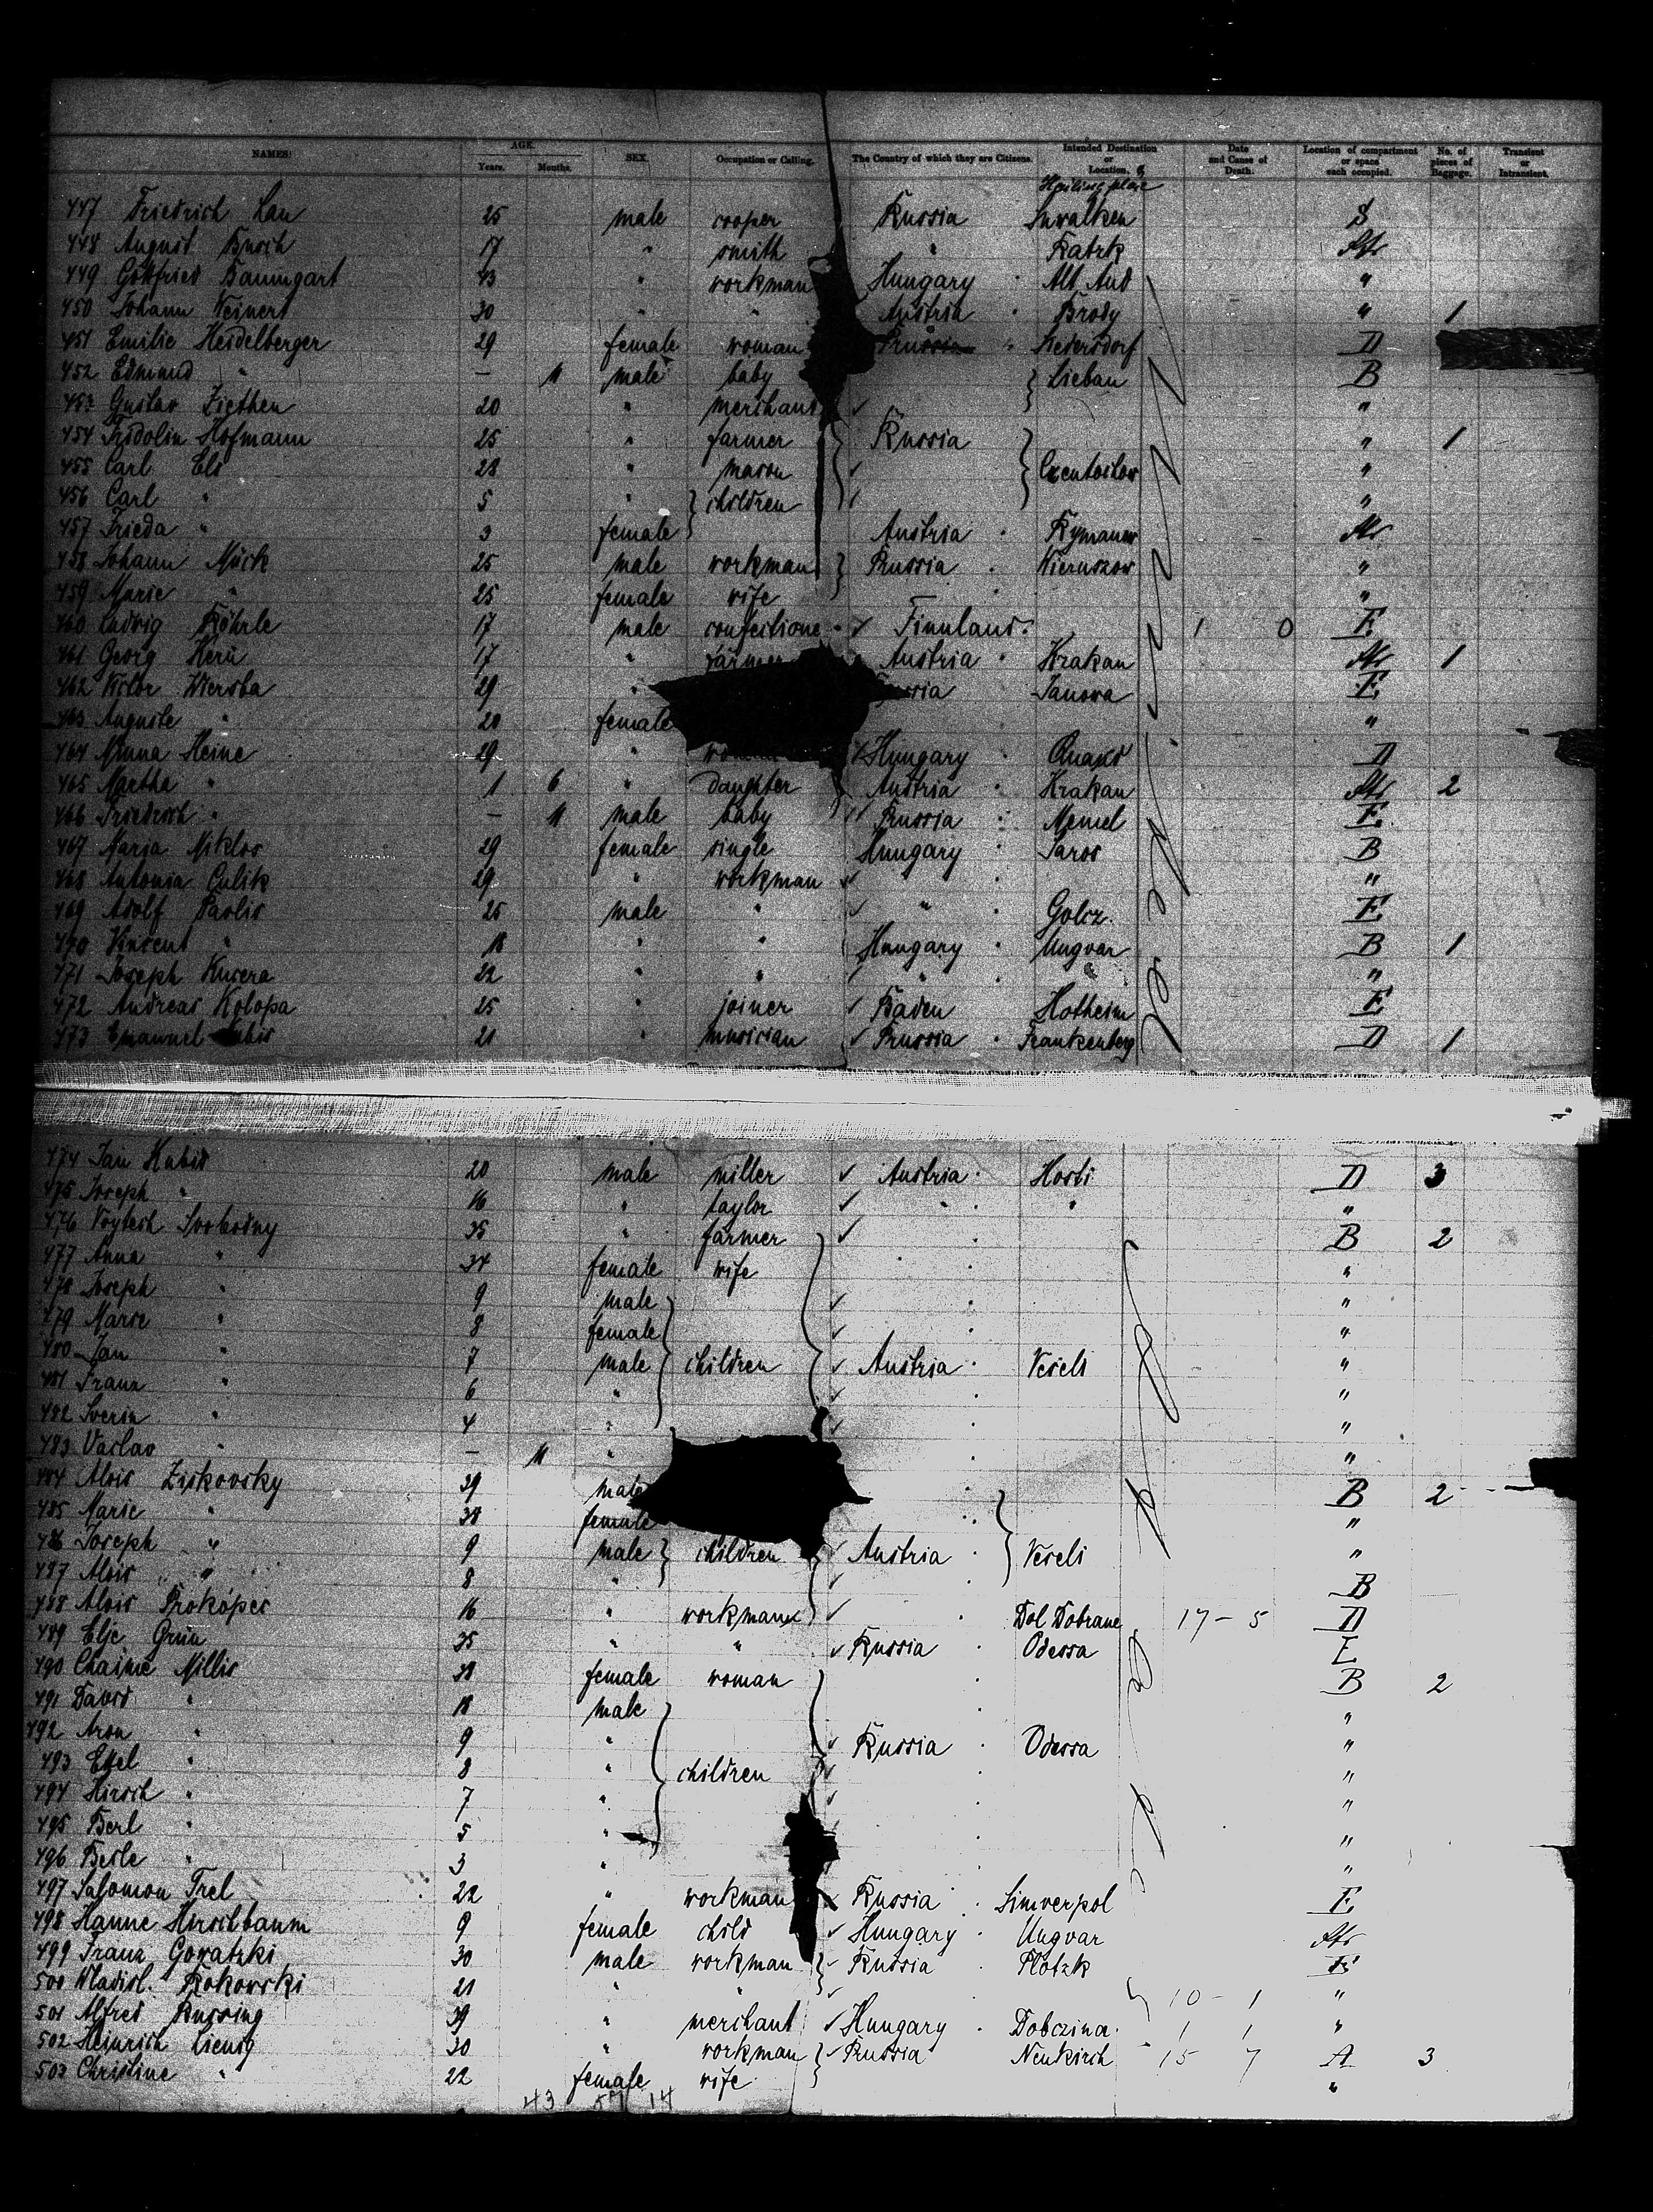 NAMES. AGE. Years. Months. SEX. Occupation or Calling. The Country of which they are Citizens. Intended Destination or Location. Date and Cause of Death. Location of compartment or space each occupied. No. of pieces of Baggage. Transient or Intransient.
447 Friedrich Lau 25 male cooper Russia Suwalken
448 August Busch 17 " smith " Str
449 Gottfried Baumgart 43 " workman Hungary "
450 Johann Weinert 30 " " Austria Brody " 1
451 Emilie Heidelberger 29 female woman Prussia D
452 Edmund " — 11 male baby Liebau B
453 Gustav Ziethen 20 " merchant "
454 Fridolin Hofmann 25 " farmer Russia " 1
455 Carl 28 " mason "
456 Carl " 5 " children "
457 Frieda " 3 female Austria Rymanow Str
458 Johann Mück 25 male workman Prussia Wieruszow "
459 Marie " 25 female wife "
460 Ludwig Röhrle 17 male Finnland 1 0 E
461 Georg 17 " farmer Austria Krakau Str 1
462 Victor Wiersba 29 " Janowa E
463 Auguste " 20 female "
464 Minna Heine 29 " Hungary D
465 Martha " 1 6 " daughter Austria Krakau Str 2
466 Friedrich " — 11 male baby Prussia Memel E
467 Maria Miklos 29 female single Hungary Saros B
468 Antonia Culik 29 " workman "
469 Adolf Paolis 25 male " " E
470 Vincent " 18 " " Hungary Ungvar B 1
471 Joseph Kucera 22 " " " "
472 Andreas Kolopa 25 " joiner Baden Hotheim E
473 Emanuel 21 " musician Prussia Frankenberg D 1
474 Jan Kubis 20 male miller Austria Hosti D 3
475 Joseph " 16 " taylor " " "
476 Voytech Svobodny 35 " farmer B 2
477 Anna " 34 female wife "
478 Joseph " 9 male "
479 Marie " 8 female "
480 Jan " 7 male children Austria Veseli "
481 Franz " 6 " "
482 " 4 " "
483 Vaclav " — 11 " "
484 Alois Ziskovsky 39 male B 2
485 Marie " 38 female "
486 Joseph " 9 male children Austria Veseli "
487 Alois " 8 " B
488 Alois Prokopec 16 " workman Dol Dobrane 17 - 5 D
489 Elje Grün 35 " " Russia Odessa E
490 Chaime Millis 38 female woman B 2
491 David " 18 male "
492 Aron " 9 " Russia Odessa "
493 Etel " 8 " children "
494 Hirsch " 7 " "
495 Berl " 5 " "
496 Beile " 3 " "
497 Salomon Trel 22 " workman Russia Simverpol E
498 Hanne Hirschbaum 9 female child Hungary Ungvar Str
499 Franz Gowatzki 30 male workman Russia Plotzk E
500 Wladisl. Rokowski 21 " " 10 - 1 "
501 Alfred Russing 39 " merchant Hungary Dobczina 1 1 "
502 Heinrich Lienig 30 " workman Prussia Neukirch 15 7 A 3
503 Christine " 22 female wife "
43 57 14